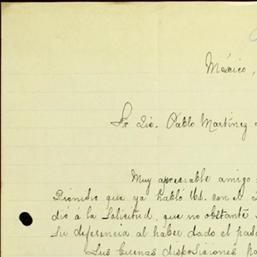 México,
Sr. Lic. Pablo Martínez
Muy apreciable amigo
Dionisio que ya habló Ud. con el
dió á la Solicitud, que no obstante
su deferencia al haber dado el
Sus buenas disposiciones